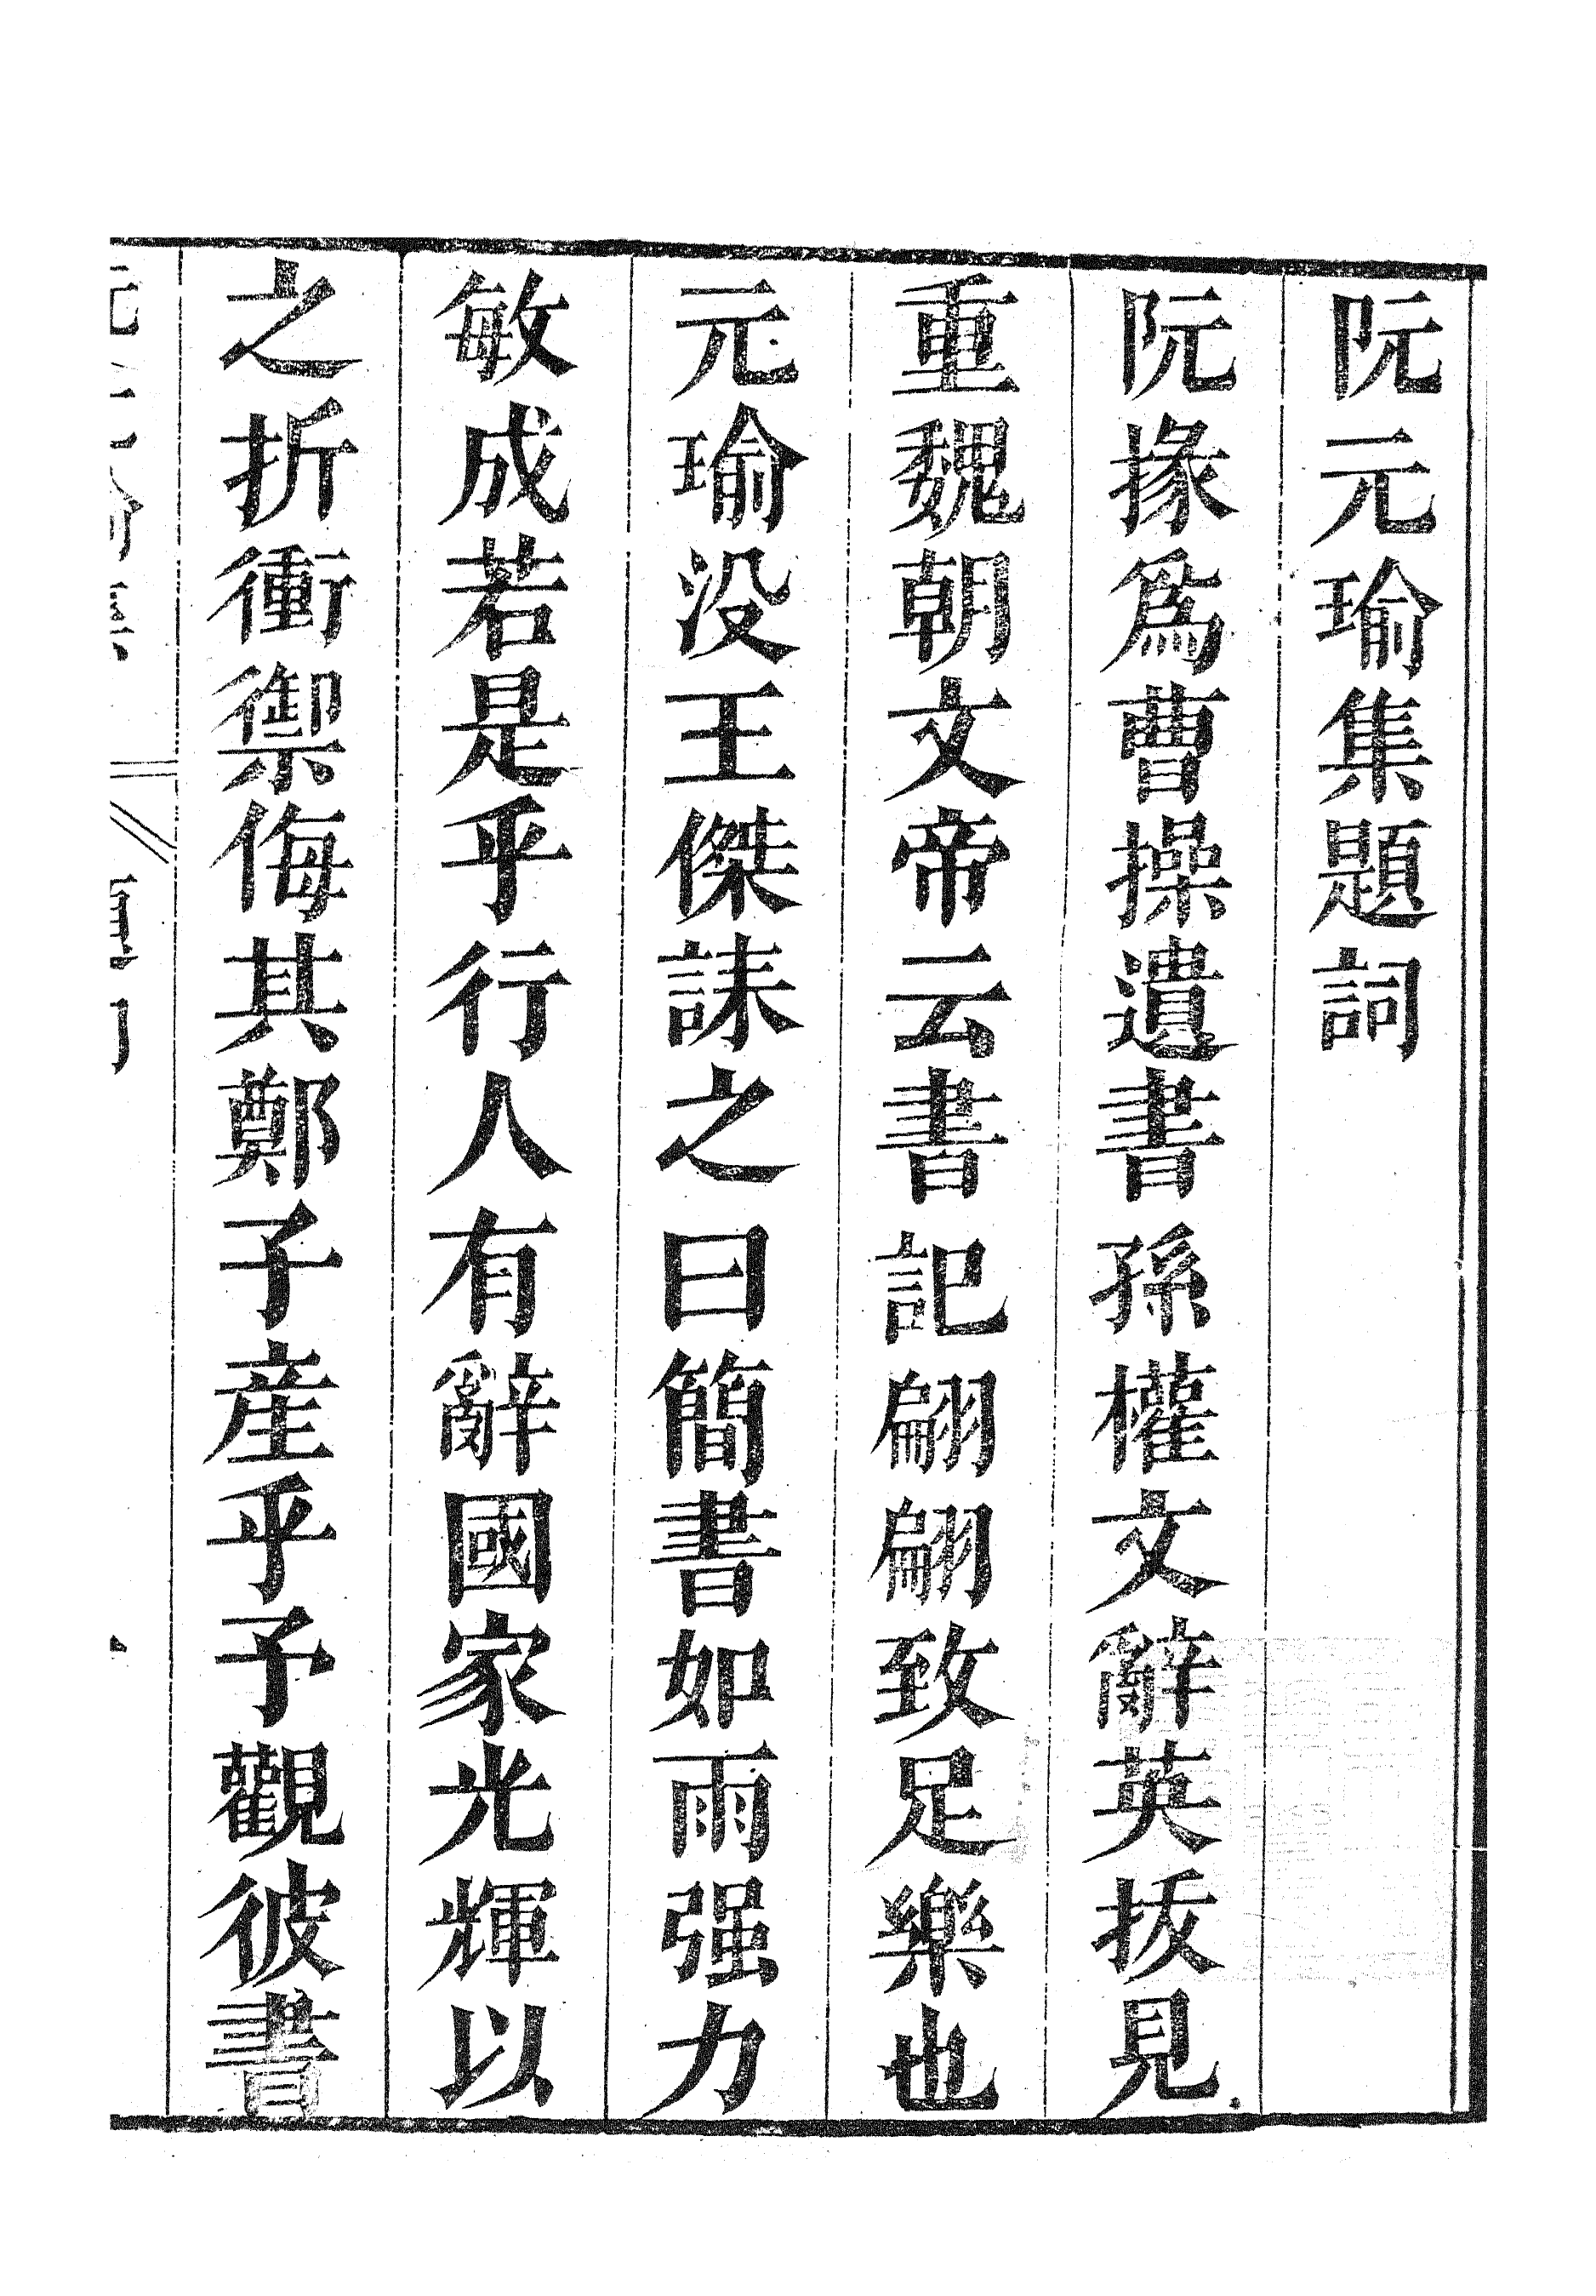 阮元瑜集題詞
阮掾爲曹操遺書孫權文辭英拔見
重魏朝文帝云書記翩翩致足樂也
元瑜没王傑誄之曰簡書如雨强力
敏成若是乎行人有辭國家光輝以
之折衝禦侮其鄭子産乎予觀彼書